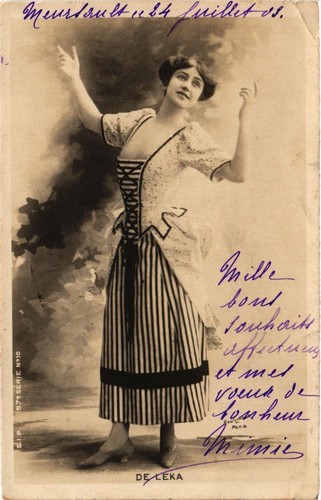 Meursault ce 24 Juillet 03.
Mille
bons
souhaits
affectueux
et mes
voeux de
bonheur
Mimie
DE LEKA
S.I.P. 57e SERIE No 10